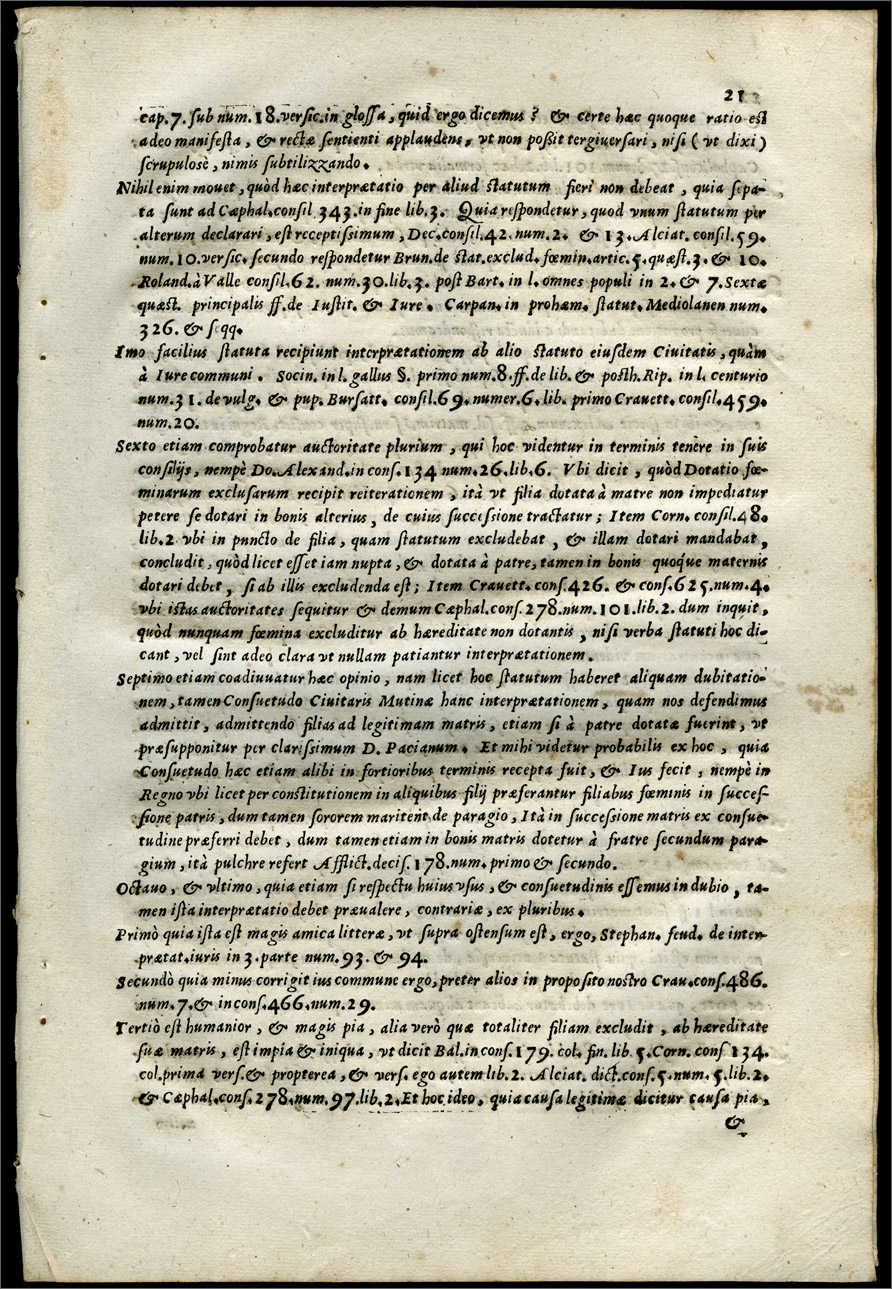 21
cap. 7. sub num. 18. versic. in glossa, quid ergo dicemus? & certe hæc quoque ratio est
adeo manifesta, & rectæ sentienti applaudens, vt non poßit tergiuersari, nisi ( vt dixi )
scrupulosè, nimis subtilizzando.
Nihil enim mouet, quòd hæc interprætatio per aliud statutum fieri non debeat, quia sepa-
ta sunt ad Cæphal. consil 343. in fine lib. 3. Quia respondetur, quod vnum statutum per
alterum declarari, est receptissimum, Dec. consil. 42. num. 2. & 13. Alciat. consil. 59.
num. 10. versic. secundo respondetur Brun. de stat. exclud. fœmin. artic. 5. quæst. 3. & 10.
Roland. à Valle consil. 62. num. 30. lib. 3. post Bart. in l. omnes populi in 2. & 7. Sextæ
quæst. principalis ff. de Iustit. & Iure. Carpan. in prohæm. statut. Mediolanen num.
326. & seqq.
Imo facilius statuta recipiunt interprætationem ab alio statuto eiusdem Ciuitatis, quàm
à Iure communi. Socin. in l. gallus §. primo num. 8. ff. de lib. & posth. Rip. in l. centurio
num. 31. de vulg. & pup. Bursatt. consil. 69. numer. 6. lib. primo Crauett. consil. 459.
num. 20.
Sexto etiam comprobatur auctoritate plurium, qui hoc videntur in terminis tenère in suis
consilijs, nempè Do. Alexand. in cons. 134 num. 26. lib. 6. Vbi dicit, quòd Dotatio fœ-
minarum exclusarum recipit reiterationem, ità vt filia dotata à matre non impediatur
petere se dotari in bonis alterius, de cuius successione tractatur; Item Corn. consil. 48.
lib. 2. vbi in pnncto de filia, quam statutum excludebat, & illam dotari mandabat,
concludit, quòd licet esset iam nupta, & dotata à patre, tamen in bonis quoque maternis
dotari debet, si ab illis excludenda est; Item Crauett. cons. 426. & cons. 625. num. 4.
vbi istas auctoritates sequitur & demum Cæphal. cons. 278. num. 101. lib. 2. dum inquit,
quòd nunquam fœmina excluditur ab hæreditate non dotantis, nisi verba statuti hoc di-
cant, vel sint adeo clara vt nullam patiantur interprætationem.
Septimo etiam coadiuuatur hæc opinio, nam licet hoc statutum haberet aliquam dubitatio-
nem, tamen Consuetudo Ciuitaris Mutinæ hanc interprætationem, quam nos defendimus
admittit, admittendo filias ad legitimam matris, etiam si à patre dotatæ fuerint, vt
præsupponitur per clarissimum D. Pacianum. Et mihi videtur probabilis ex hoc, quia
Consuetudo hæc etiam alibi in fortioribus terminis recepta fuit, & Ius fecit, nempè in
Regno vbi licet per constitutionem in aliquibus filij præferantur filiabus fœminis in succes-
sione patris, dum tamen sororem maritent de paragio, Ità in successione matris ex consue-
tudine præferri debet, dum tamen etiam in bonis matris dotetur à fratre secundum para-
gium, ità pulchre refert Afflict. decis. 178. num. primo & secundo.
Octauo, & vltimo, quia etiam si respectu huius vsus, & consuetudinis essemus in dubio, ta-
men ista interprætatio debet præualere, contrariæ, ex pluribus.
Primò quia ista est magis amica litteræ, vt supra ostensum est, ergo, Stephan. feud. de inter-
prætat. iuris in 3. parte num. 93. & 94.
Secundò quia minus corrigit ius commune ergo, preter alios in proposito nostro Crau. cons. 486.
num. 7. & in cons. 466. num. 29.
Tertiò est humanior, & magis pia, alia verò quæ totaliter filiam excludit, ab hæreditate
suæ matris, est impia & iniqua, vt dicit Bal. in cons. 179. col. fin. lib. 5. Corn. cons 134.
col. prima vers. & propterea, & vers. ego autem lib. 2. Alciat. dict. cons. 5. num. 5. lib. 2.
& Cæphal. cons. 278. num. 97. lib. 2. Et hoc ideo, quia causa legitimæ dicitur causa pia,
&